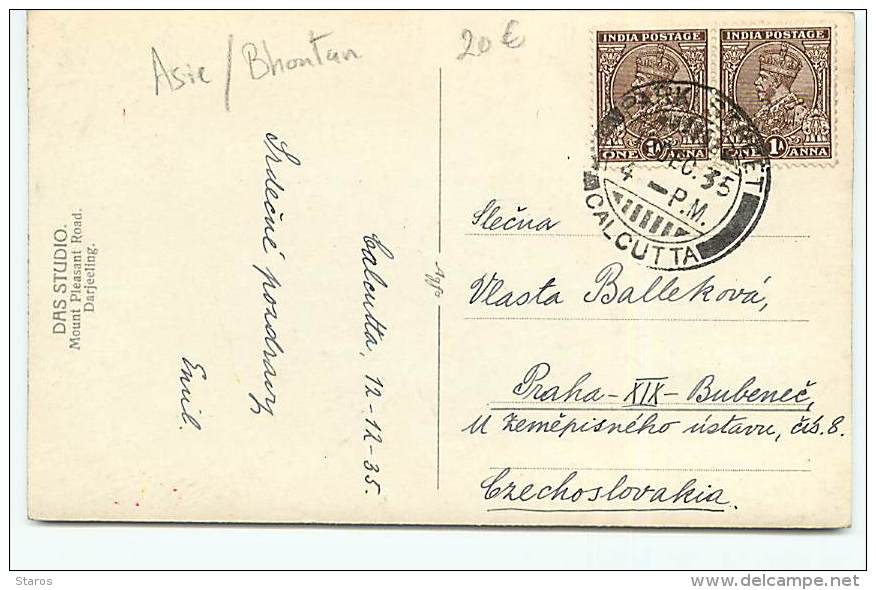 Asie / Bhoutan
20€
INDIA POSTAGE
ONE 1A ANNA
INDIA POSTAGE
ONE 1A ANNA
PARK STREET
DEC. 35
4 - P.M.
CALCUTTA
DAS STUDIO.
Mount Pleasant Road.
Darjeeling.
Srdečné pozdravy
Emil.
Calcutta, 12-12-35.
Agfa
Slečna
Vlasta Balleková,
Praha - XIX - Bubeneč,
U Zeměpisného ústavu, čís. 8.
Czechoslovakia.
Staros
delcampe.net